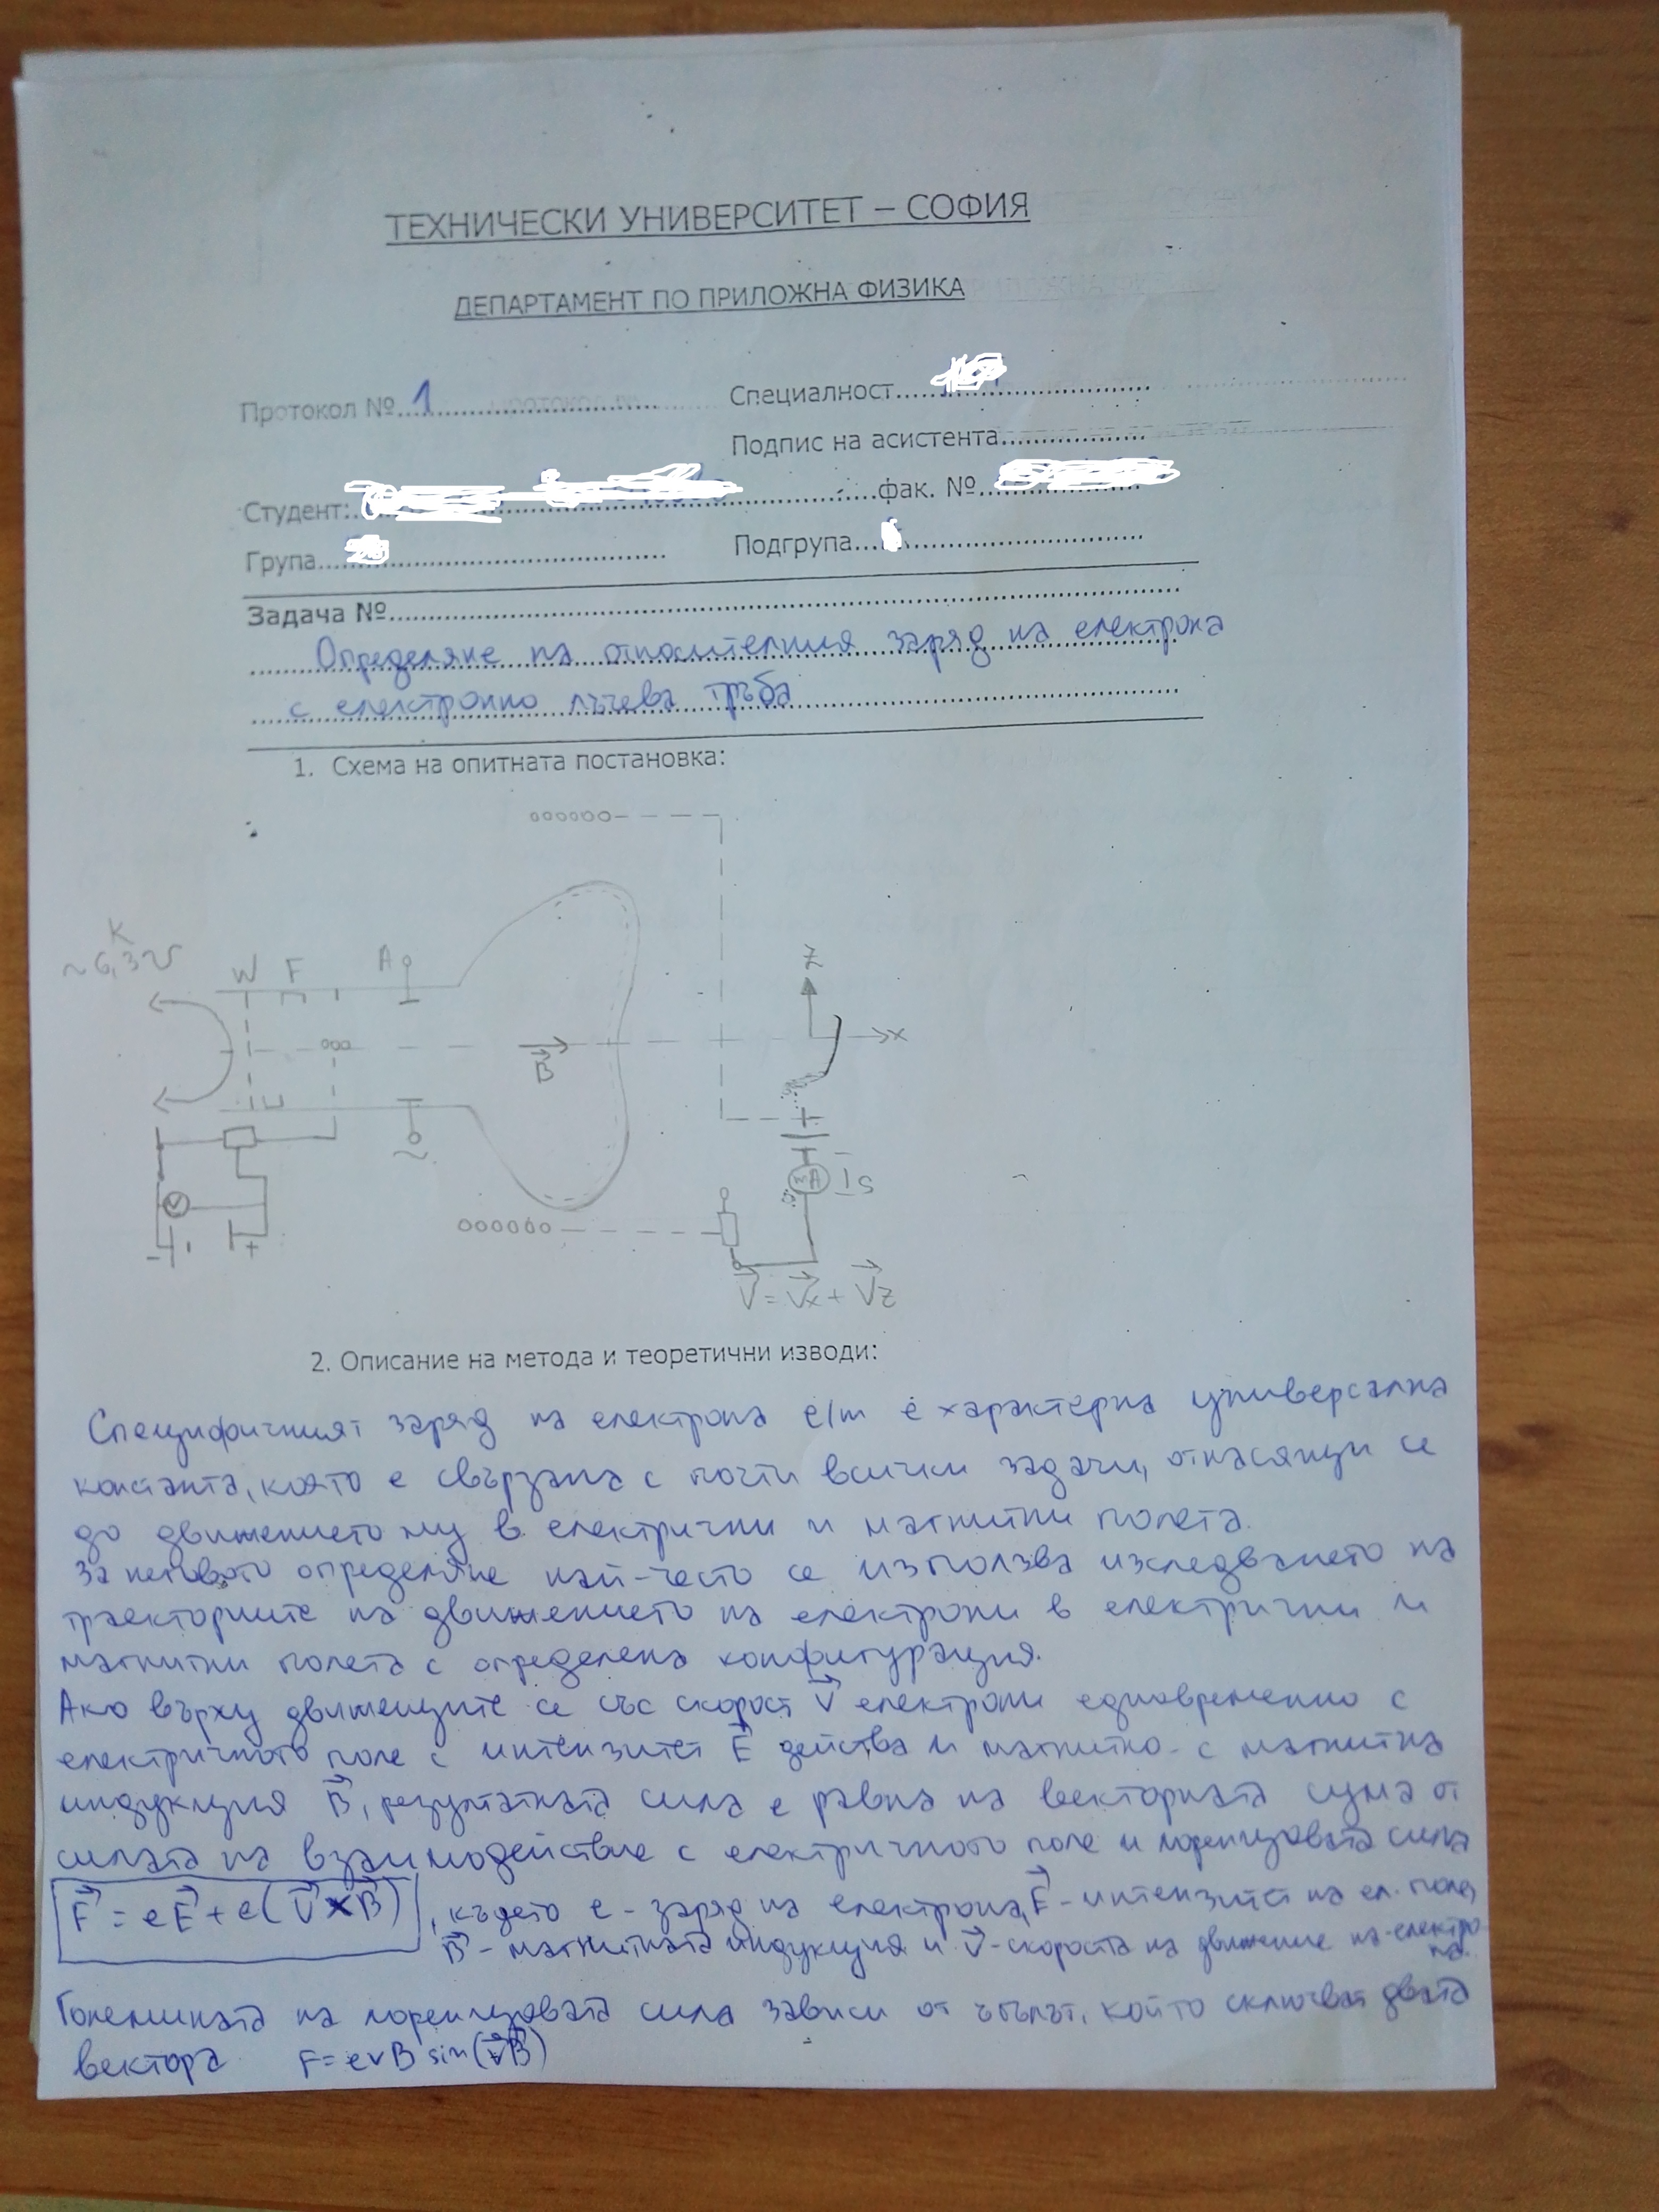 ТЕХНИЧЕСКИ УНИВЕРСИТЕТ – СОФИЯ
ДЕПАРТАМЕНТ ПО ПРИЛОЖНА ФИЗИКА
Протокол №...1.............................. Специалност..............................
Подпис на асистента..................
Студент:..............................фак. №..................
Група.............................. Подгрупа..............................
Задача №..............................
Определяне на относителния заряд на електрона
с електронно лъчева тръба
1. Схема на опитната постановка:
K
~6,3V
W F A
Z
x
B
~
V
- +
+
mA Is
V = Vx + Vz
2. Описание на метода и теоретични изводи:
Специфичният заряд на електрона e/m е характерна универсална
константа, която е свързана с почти всички задачи, отнасящи се
до движението му в електрични и магнитни полета.
За неговото определяне най-често се използва изследването на
траекториите на движението на електрони в електрични и
магнитни полета с определена конфигурация.
Ако върху движещите се със скорост V електрони едновременно с
електричното поле с интензитет E действа и магнитно - с магнитна
индукция B, резултатната сила е равна на векторната сума от
силата на взаимодействие с електричното поле и лоренцовата сила
F = eE + e(V×B), където e - заряд на електрона, E - интензитет на ел. поле,
B - магнитната индукция и V - скоростта на движение на електро-
на.
Големината на лоренцовата сила зависи от ъгълът, който сключват двата
вектора F = evB sin(vB)